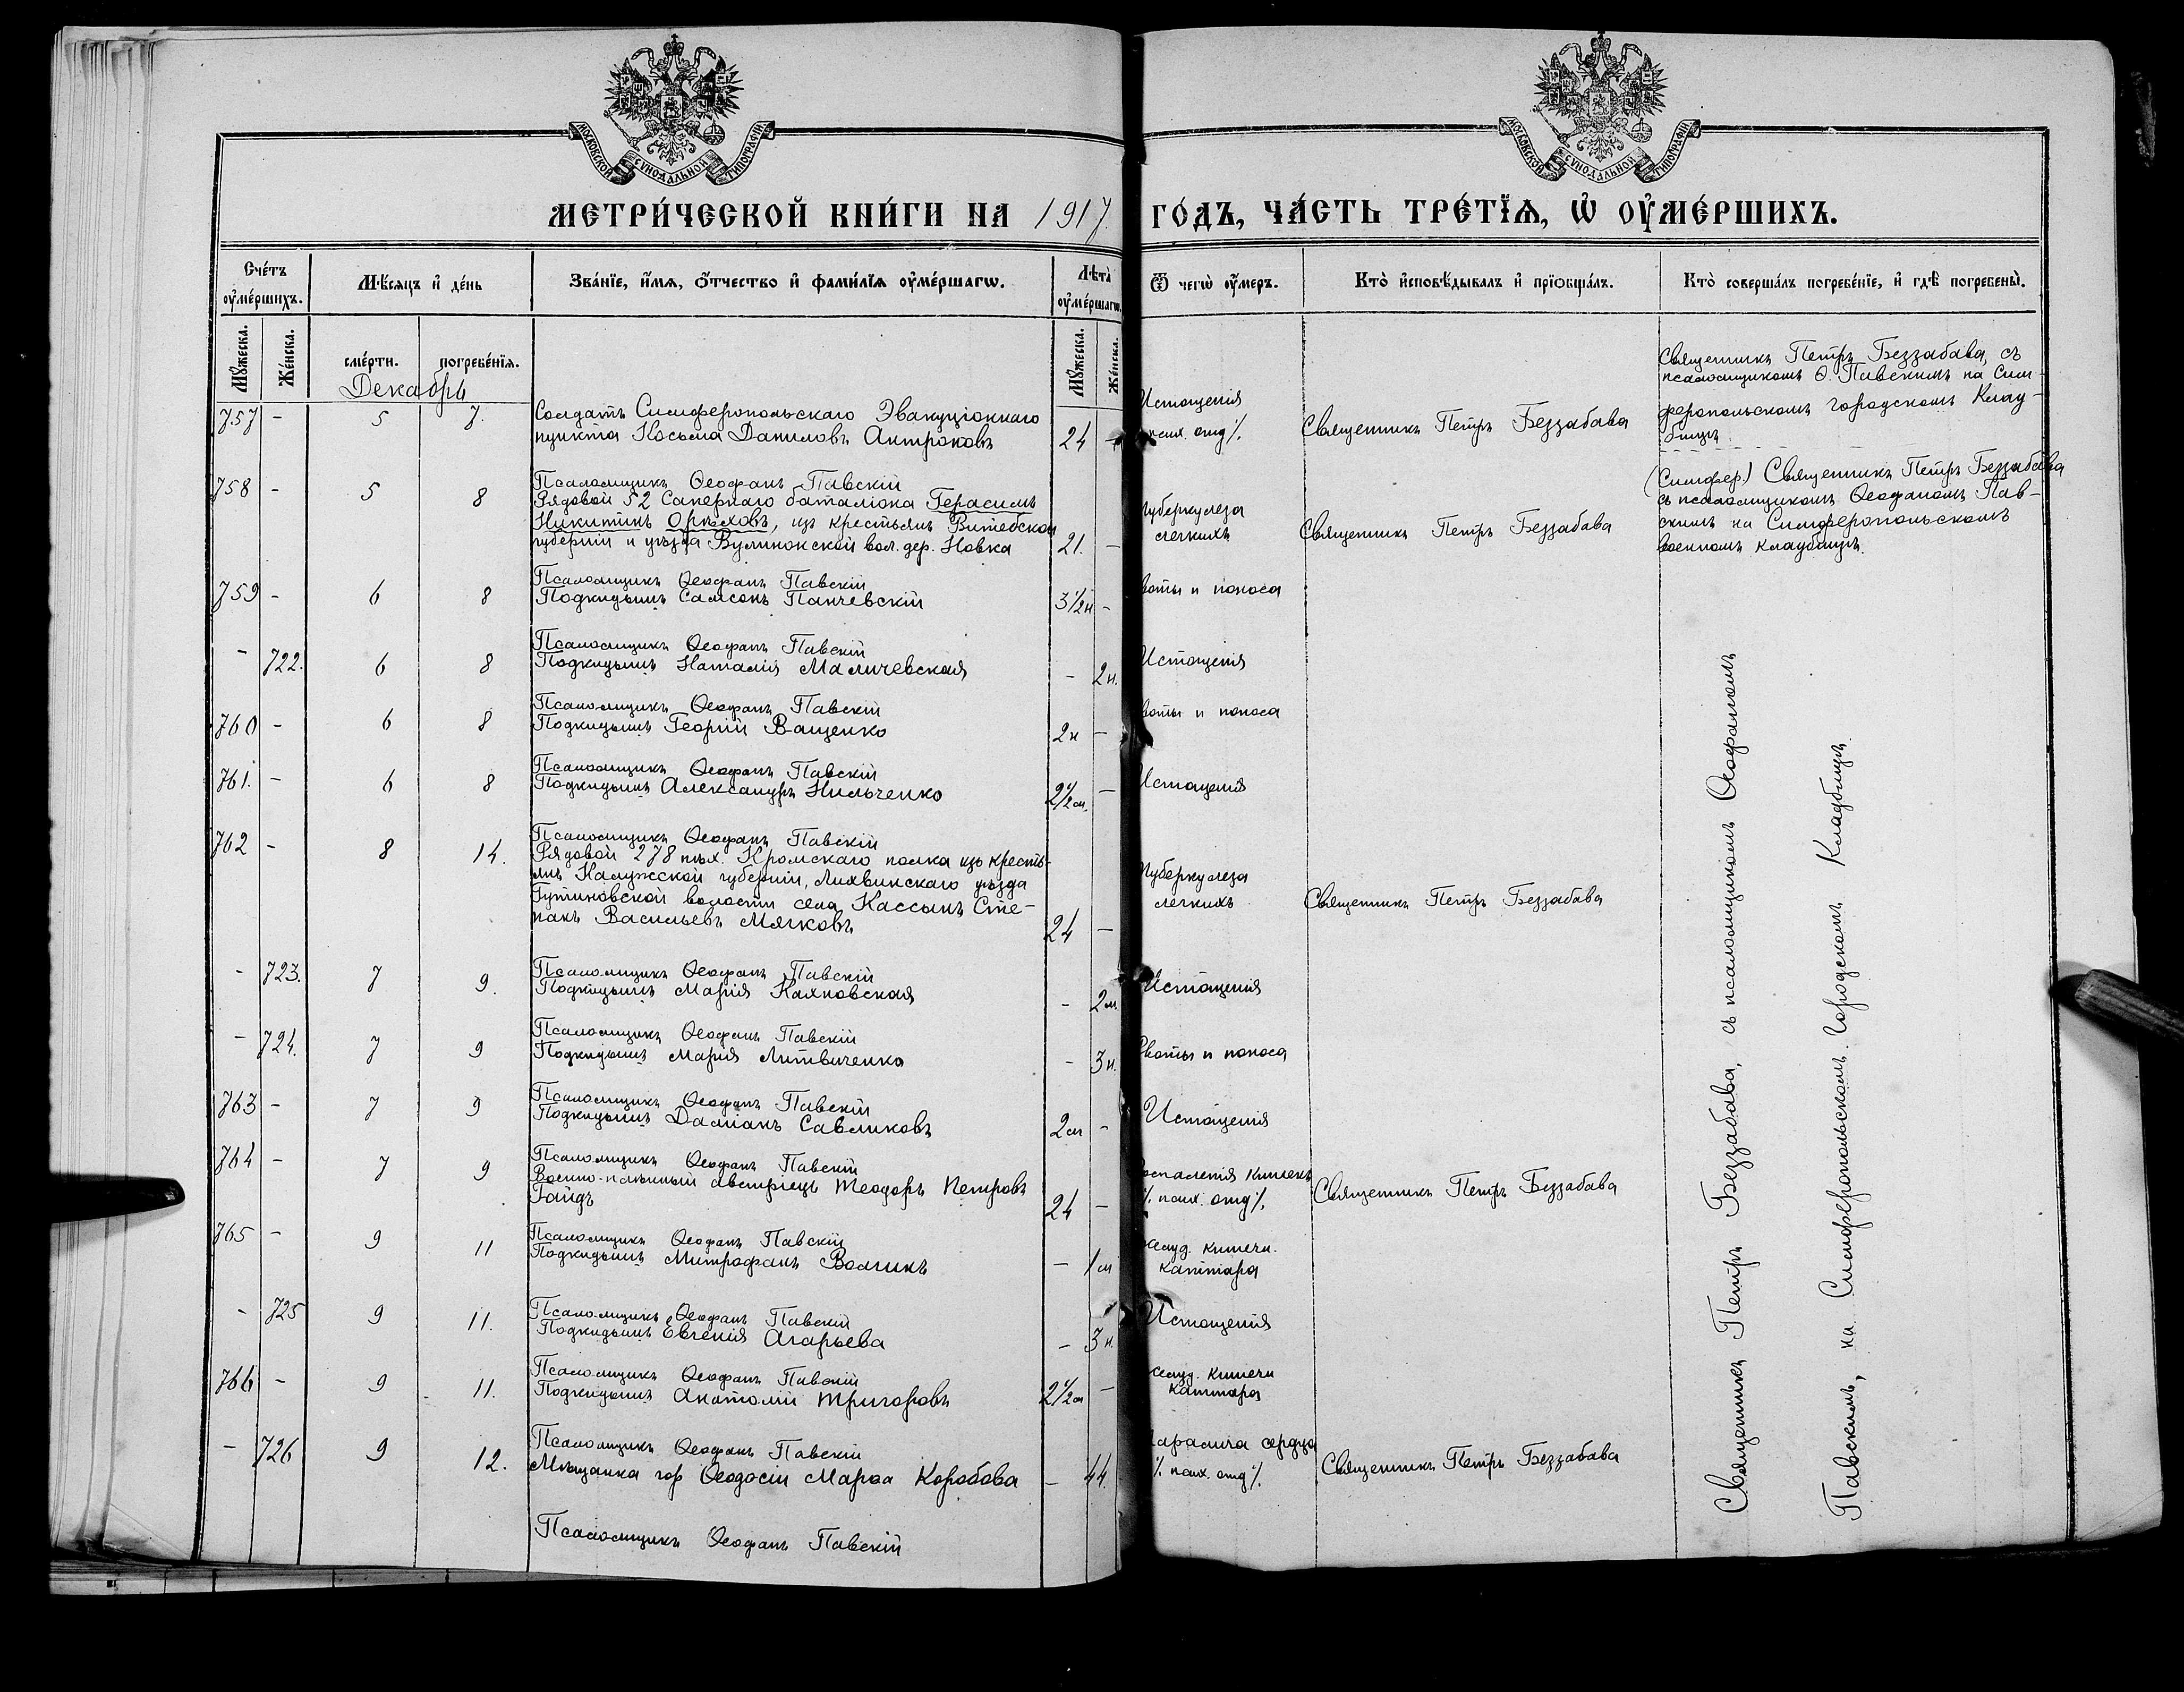 МОСКОВСКОЙ СѴНОДАЛЬНОЙ ТИПОГРАФІИ
МОСКОВСКОЙ СѴНОДАЛЬНОЙ ТИПОГРАФІИ
МЕТРИ́ЧЕСКОЙ КНИ́ГИ НА 1917 ГО́ДЪ, ЧА́СТЬ ТРЕ́ТЇѦ, Ѡ҆ ОУ҆МЕ́РШИХЪ.
Сче́тъ оу҆ме́ршихъ.
Мѣ́сѧцъ и҆ де́нь
Зва́нїе, и҆́мѧ, ѻ҆́тчество и҆ фами́лїѧ оу҆ме́ршагѡ.
Лѣ́та оу҆ме́ршагѡ.
Ѿ чегѡ̀ оу҆́меръ.
Кто̀ и҆сповѣ́дывалъ и҆ прїѻбща́лъ.
Кто̀ соверша́лъ погребе́нїе, и҆ гдѣ̀ погребены̀.
Мꙋ́жеска. Же́нска. сме́рти. погребе́нїѧ. Мꙋ́жеска. Же́нска.
Декабрь
757 - 5 7. Солдатъ Симферопольскаго Эвакуціоннаго
пункта Косьма Даниловъ Антроковъ 24 -
Истощенія
псих. отд%.
Священникъ Петръ Беззабава
Священникъ Петръ Беззабава, съ
псаломщикомъ Ѳ. Павскимъ на Сим-
феропольскомъ городскомъ Клад-
бищѣ
Псаломщикъ Ѳеофанъ Павскій
758 - 5 8 Рядовой 52 Сапернаго баталіона Герасимъ
Никитинъ Орѣховъ, изъ крестьянъ Витебской
губерніи и уѣзда Вулинокской вол. дер. Новка 21. -
туберкулеза
легкихъ
Священникъ Петръ Беззабава
(Симфер.) Священникъ Петръ Беззабава
съ псаломщикомъ Ѳеофаномъ Пав-
скимъ на Симферопольскомъ
военномъ кладбищѣ.
Псаломщикъ Ѳеофанъ Павскій
759 - 6 8 Подкидышъ Самсонъ Панчевскій 3½н - рвоты и поноса
Псаломщикъ Ѳеофанъ Павскій
- 722. 6 8 Подкидышъ Наталія Маличевская - 2н. Истощенія
Псаломщикъ Ѳеофанъ Павскій
760 - 6 8 Подкидышъ Георгій Ващенко 2н - рвоты и поноса
Псаломщикъ Ѳеофанъ Павскій
761. - 6 8 Подкидышъ Александръ Нильченко 2½м. - Истощенія
Псаломщикъ Ѳеофанъ Павскій
762 - 8 14. Рядовой 278 пѣх. Кромскаго полка изъ кресть-
янъ Калужской губерніи, Лихвинскаго уѣзда
Гутиновской волости села Кассынъ Сте-
панъ Васильевъ Мягковъ 24 -
туберкулеза
легкихъ
Священникъ Петръ Беззабава
Псаломщикъ Ѳеофанъ Павскій
- 723. 7 9. Подкидышъ Марія Каяновская - 2м. Истощенія
Псаломщикъ Ѳеофанъ Павскій
- 724. 7 9 Подкидышъ Марія Литвиченко - 3н. Рвоты и поноса
Псаломщикъ Ѳеофанъ Павскій
763 - 7 9 Подкидышъ Даміанъ Савликовъ 2м - Истощенія
Псаломщикъ Ѳеофанъ Павскій
764 - 7 9 Военно-плѣнный австріецъ Теодоръ Петровъ
Гайдъ 24 -
Воспаленія кишекъ
% псих. отд%.
Священникъ Петръ Беззабава
Псаломщикъ Ѳеофанъ Павскій
765 - 9 11 Подкидышъ Митрофанъ Волгинъ - 1м
желуд. кишечн.
каттара
Псаломщикъ Ѳеофанъ Павскій
- 725 9 11. Подкидышъ Евгенія Агарьева - 3н. Истощенія
Псаломщикъ Ѳеофанъ Павскій
766 - 9 11. Подкидышъ Анатолій Григоровъ 2½м -
желуд. кишечн
каттара
Псаломщикъ Ѳеофанъ Павскій
- 726 9 12. Мѣщанка гор Ѳеодосіи Марѳа Коробова - 44.
паралича сердца
% псих. отд%.
Священникъ Петръ Беззабава
Псаломщикъ Ѳеофанъ Павскій
Священникъ Петръ Беззабава, съ псаломщикомъ Ѳеофаномъ
Павскимъ, на Симферопольскомъ Городскомъ Кладбищѣ